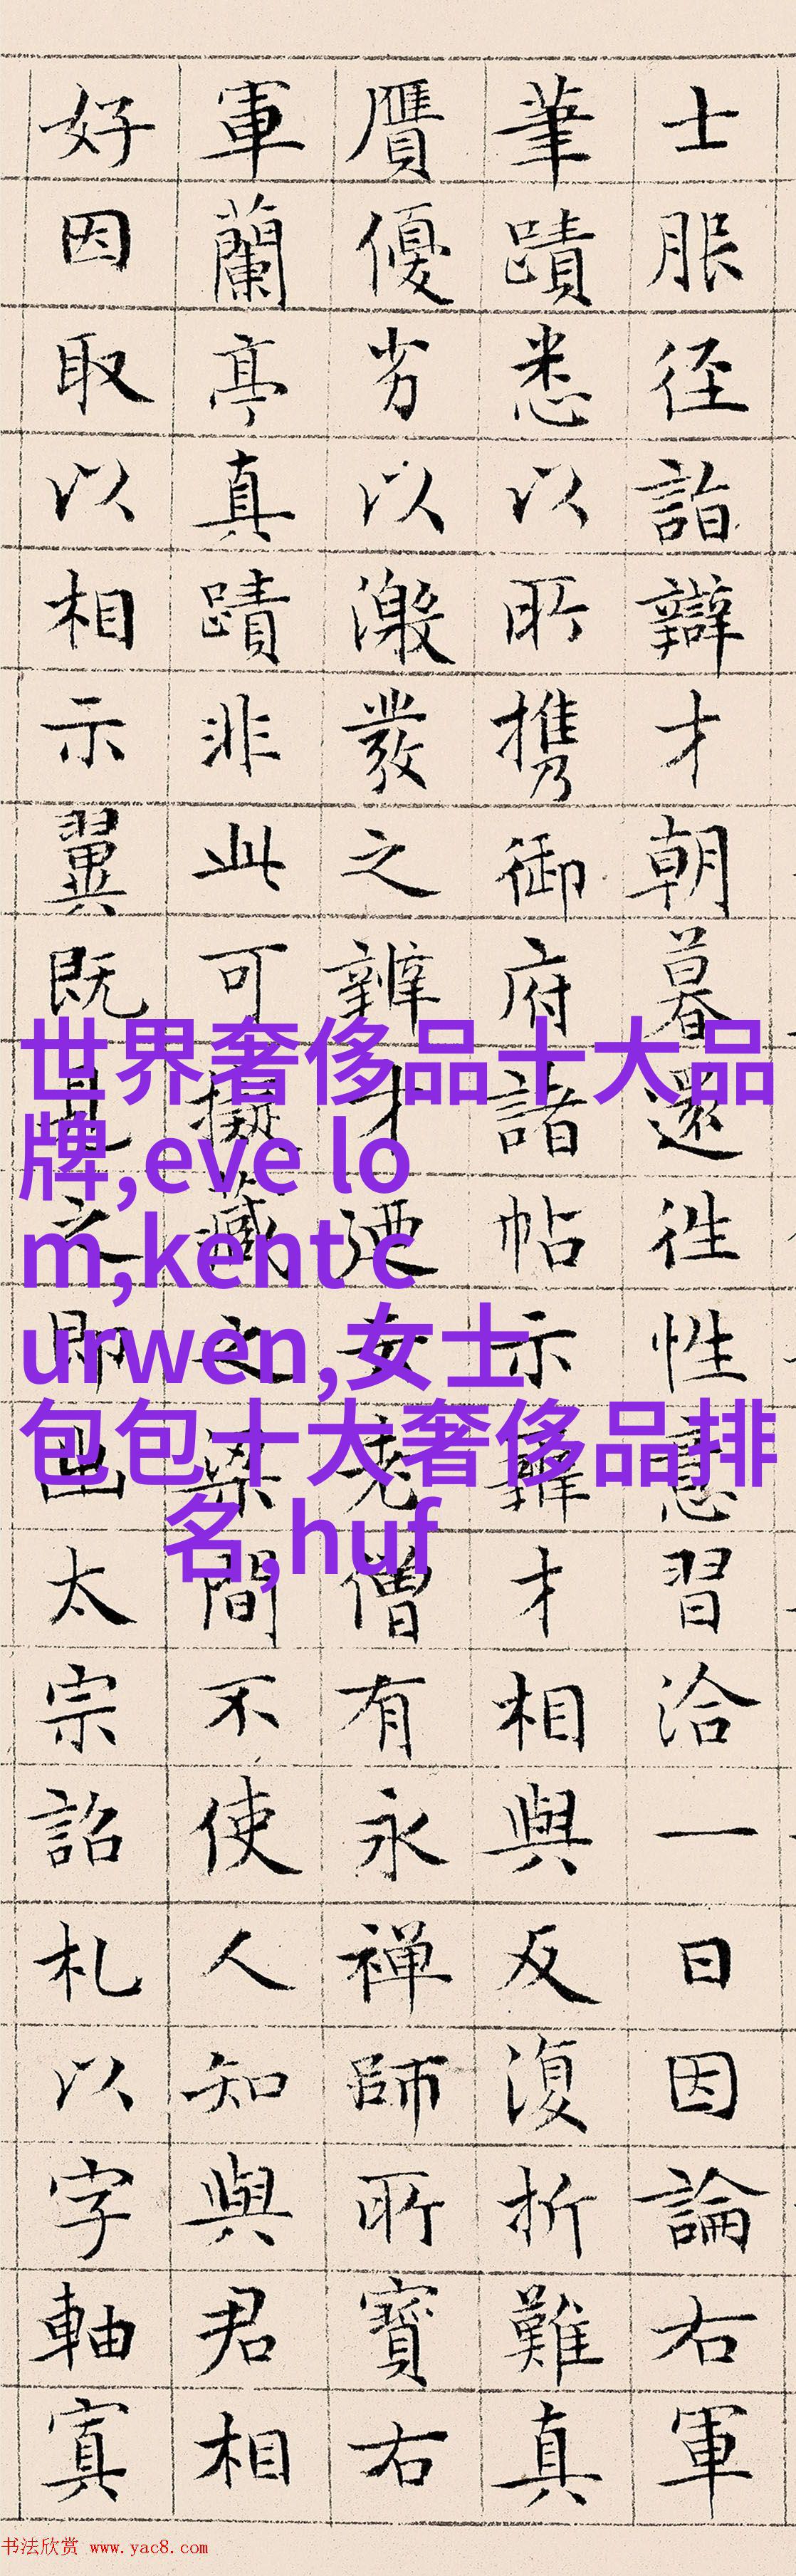 士服径詣辯才朝暮還徃性意習洽一日因論右軍
筆蹟悉以所携御府諸帖示辯才相與反復折難真
贗優劣以激發之辯才迺云老僧有永禪師所寶右
軍蘭亭真蹟非此可擬藏之梁間不使人知與君相
好因取以相示翼既見之即出太宗詔札以字軸寘
世界奢侈品十大品
牌,eve lo
m,kent c
urwen,女士
包包十大奢侈品排
名,huf
书法欣赏 www.yac8.com